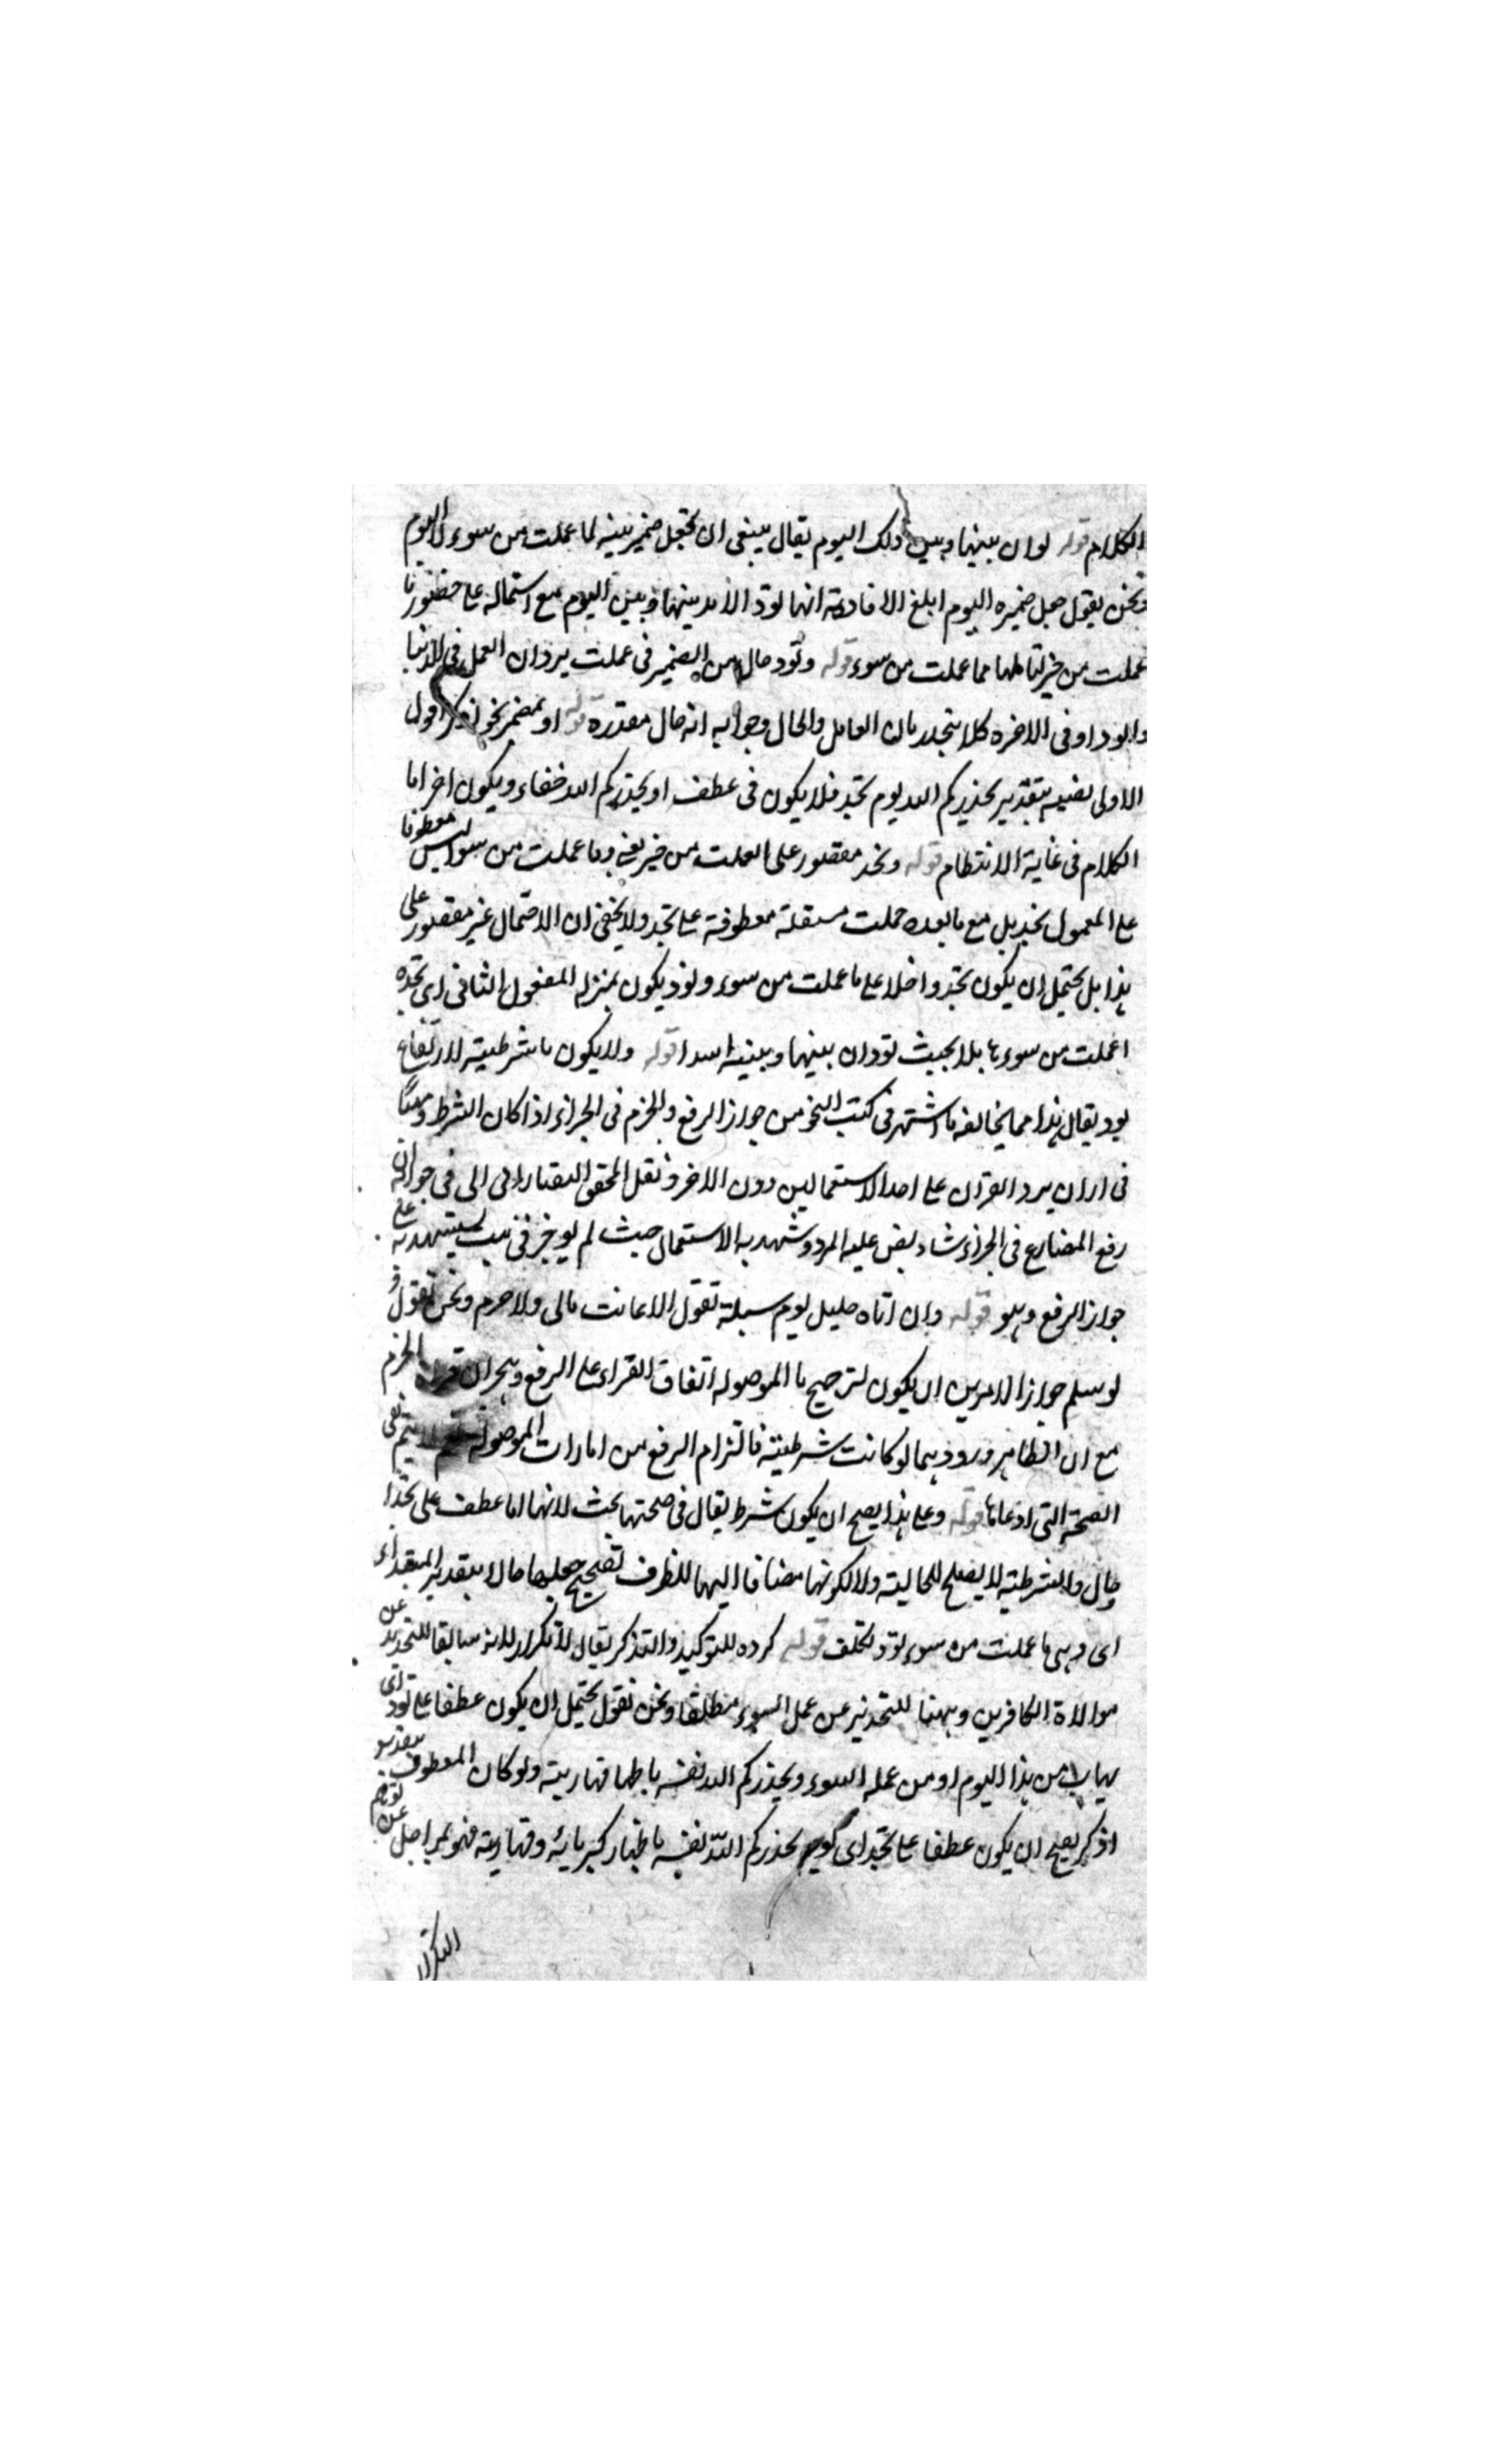 الكلام قوله لو ان بينها وبين ذلك اليوم يقال ينبغي ان تجعل ضمير بينه لما عملت من سوء لا لليوم
ونحن يقول جعل ضميره اليوم ابلغ لافادته انها تود الامد بينها وبين اليوم مع اشتماله على حضور ما
عملت من خير لها مما عملت من سوء قوله وتود حال من الضمير في عملت يرد ان العمل في الدنيا
والوداد في الاخرة فلا يتحد زمان العامل والحال وجوابه انه حال مقدرة قوله او بمضمر نحو اذكر اقول
الاولى نصبه بتقدير يحذركم الله يوم تجد فلا يكون في عطف او يحذركم الله خفاء ويكون اخر
الكلام في غاية الانتظام قوله وتجد مقصور على ما عملت من خير يعني وما عملت من سوء ليس معطوفا
على المعمول تجد بل مع ما بعده جملت مستقلة معطوفة على تجد ولا يخفى ان الاحتمال غير مقصور على
هذا بل يحتمل ان يكون تجد داخلا على ما عملت من سوء وتود يكون بمنزله المفعول الثاني اي تجده
عملت من سوء بحيث تود ان بينها وبينه امدا قوله ولا يكون ما شرطية لارتفاع
تود يقال هذا مما يخالفه ما اشتهر في كتب النحو من جواز الرفع والجزم في الجزاء اذا كان الشرط
في ان يرد القران على احد الاستعمالين دون الاخر ونقل المحقق التفتازاني في ان
رفع المضارع في الجزاء شاذ نص عليه المبرد وشهد به الاستعمال حيث لم يوجد في بيت يستشهد به على
جواز الرفع وهو قوله وان اتاه خليل يوم مسئلة يقول لا غائب مالي ولا حرم ونحن نقول
لو سلم جواز الامرين ان يكون لترجيح ما الموصوله اتفاق القراء على الرفع الجزم
مع ان الظاهر ورودهما لو كانت شرطية فالتزام الرفع من امارات الموصولة يتم نفي
الصحة التي ادعاها قوله وعلى هذا يصح ان يكون شرط يقال في صحتها بحث لانها اما عطف على تجد او
حال والشرطية لا يصلح للحالية ولا لكونها مضافا اليها للظرف تصحيح جعلها حالا بتقدير المبتداء
اي وهي ما عملت من سوء تود تكلف قوله كرره للتوكيد والتذكر يقال لا تكرار لانه سابقا للتحذير عن
موالاة الكافرين وههنا للتحذير عن عمل السوء مطلقا ونحن نقول يحتمل ان يكون عطفا على تود اي
من هذا اليوم او من عمله السوء ويحذركم الله نفسه باظهار قهاريته ولو كان المعطوف بتقدير
اذكر يصح ان يكون عطفا على تجد اي يحذركم الله نفسه باظهار كبريائه وقهاريته فهو بمراحل عن توهم
التكرار